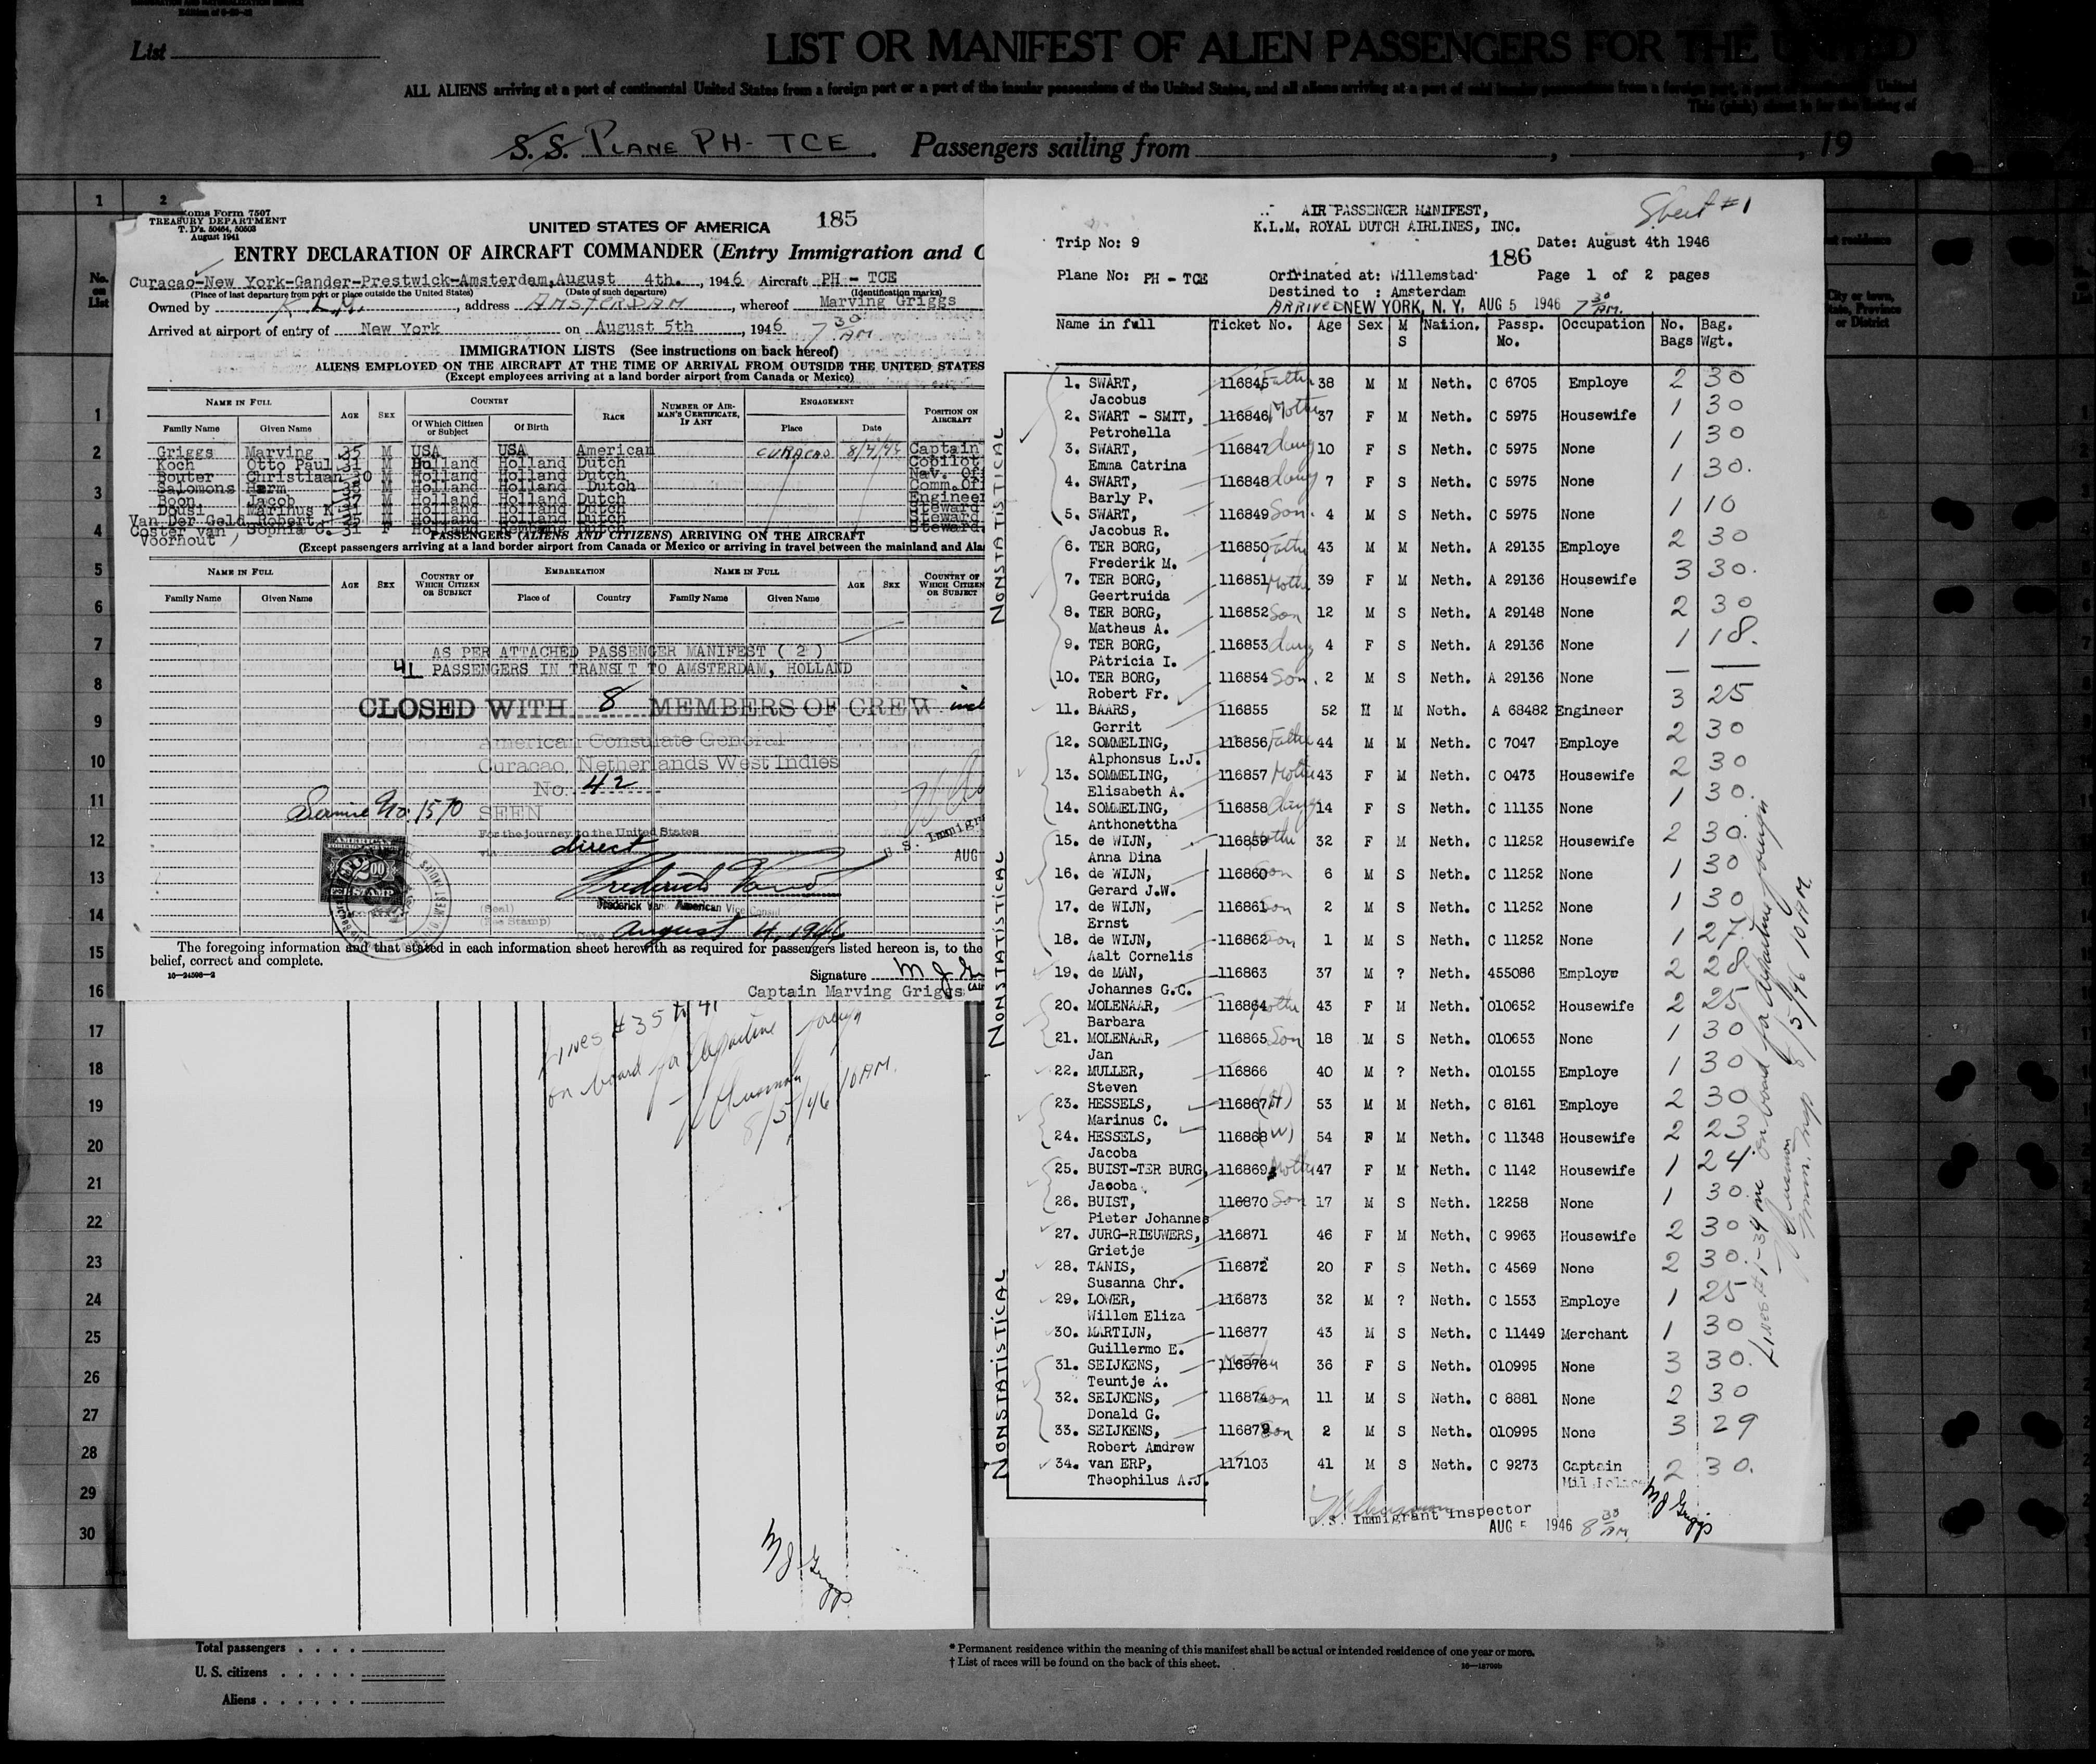 Edition of
List
LIST OR MANIFEST OF ALIEN PASSENGERS FOR THE UNITED
ALL ALIENS arriving at a port of continental United States from a foreign port or a port of the insular possessions of the United States, and all aliens arriving at a port of said insular possessions from a foreign port, a port of continental United
This (pink) sheet is for the listing of
S.S. PLANE PH-TCE. Passengers sailing from , , 19
1 2
No. on List
Customs Form 7507
TREASURY DEPARTMENT
T. D's. 50464, 50503
August 1941
UNITED STATES OF AMERICA 185
ENTRY DECLARATION OF AIRCRAFT COMMANDER (Entry Immigration and C
Curacao-New York-Gander-Prestwick-Amsterdam, August 4th. , 1946 Aircraft PH - TCE
(Place of last departure from port or place outside the United States) (Date of such departure) (Identification marks)
Owned by K.L.M. , address AMSTERDAM , whereof Marving Griggs
Arrived at airport of entry of New York on August 5th , 1946 7 30 AM.
IMMIGRATION LISTS (See instructions on back hereof)
ALIENS EMPLOYED ON THE AIRCRAFT AT THE TIME OF ARRIVAL FROM OUTSIDE THE UNITED STATES
(Except employees arriving at a land border airport from Canada or Mexico)
NAME IN FULL AGE SEX COUNTRY RACE NUMBER OF AIRMAN'S CERTIFICATE, IF ANY ENGAGEMENT POSITION ON AIRCRAFT
Family Name Given Name Of Which Citizen or Subject Of Birth Place Date
Griggs Marving 35 M USA USA American CURACAO 8/4/46 Captain
Koch Otto Paul 31 M Holland Holland Dutch Copilot
Bouter Christiaan 30 M Holland Holland Dutch Nav. Off
Salomons Harm M Holland Holland Dutch Comm.Off
Boon Jacob M Holland Holland Dutch Engineer
Dousi Marinus K M Holland Holland Dutch Steward
Van Der Geld Robert M Holland Holland Dutch Steward
Coster van Voorhout, Sophia C. 31 F Dutch Steward.
PASSENGERS (ALIENS AND CITIZENS) ARRIVING ON THE AIRCRAFT
(Except passengers arriving at a land border airport from Canada or Mexico or arriving in travel between the mainland and Ala
NAME IN FULL AGE SEX COUNTRY OF WHICH CITIZEN OR SUBJECT EMBARKATION NAME IN FULL AGE SEX COUNTRY OF WHICH CITIZEN OR SUBJECT
Family Name Given Name Place of Country Family Name Given Name
AS PER ATTACHED PASSENGER MANIFEST ( 2 )
41 PASSENGERS IN TRANSIT TO AMSTERDAM, HOLLAND
CLOSED WITH 8 MEMBERS OF CREW incl
American Consulate General
Curacao, Netherlands West Indies
No. 42
Service No. 1570 SEEN
For the journey to the United States
via direct
AMERICAN
FOREIGN SERVICE
$2.00
FEE STAMP
U. S. Immigr
AUG
Frederick Vand American Vice Consul
(Seal)
(Fee Stamp)
Date August 4, 1946
The foregoing information and that stated in each information sheet herewith as required for passengers listed hereon is, to the
belief, correct and complete.
16-24598-2
Signature M J Gr
Captain Marving Griggs
Lines #35 to 41
on board for departure foreign
8/5/46 10 AM.
M J Griggs
1
2
3
4
5
6
7
8
9
10
11
12
13
14
15
16
17
18
19
20
21
22
23
24
25
26
27
28
29
30
Sheet #1
AIR PASSENGER MANIFEST,
K.L.M. ROYAL DUTCH AIRLINES, INC.
Trip No: 9 186 Date: August 4th 1946
Plane No: PH - TCE Originated at: Willemstad Page 1 of 2 pages
Destined to : Amsterdam
ARRIVED NEW YORK, N. Y. AUG 5 1946 7 30 AM.
Name in full Ticket No. Age Sex M S Nation. Passp. No. Occupation No. Bags Bag. Wgt.
NONSTATISTICAL
NONSTATISTICAL
NONSTATISTICAL
1. SWART, 116845 Father 38 M M Neth. C 6705 Employe 2 30
Jacobus
2. SWART - SMIT, 116846 Mother 37 F M Neth. C 5975 Housewife 1 30
Petrohella
3. SWART, 116847 daug 10 F S Neth. C 5975 None 1 30
Emma Catrina
4. SWART, 116848 daug 7 F S Neth. C 5975 None 1 30.
Barly P.
5. SWART, 116849 Son. 4 M S Neth. C 5975 None 1 10
Jacobus R.
6. TER BORG, 116850 Father 43 M M Neth. A 29135 Employe 2 30
Frederik M.
7. TER BORG, 116851 Mother 39 F M Neth. A 29136 Housewife 3 30.
Geertruida
8. TER BORG, 116852 Son 12 M S Neth. A 29148 None 2 30
Matheus A.
9. TER BORG, 116853 daug 4 F S Neth. A 29136 None 1 18.
PAtricia I.
10. TER BORG, 116854 Son. 2 M S Neth. A 29136 None — —
Robert Fr.
11. BAARS, 116855 52 M M Neth. A 68482 Engineer 3 25
Gerrit
12. SOMMELING, 116856 Father 44 M M Neth. C 7047 Employe 2 30
Alphonsus L.J.
13. SOMMELING, 116857 Mother 43 F M Neth. C 0473 Housewife 2 30
Elisabeth A.
14. SOMMELING, 116858 daug 14 F S Neth. C 11135 None 1 30.
Anthonettha
15. de WIJN, 116859 Mother 32 F M Neth. C 11252 Housewife 2 30
Anna Dina
16. de WIJN, 116860 Son 6 M S Neth. C 11252 None 1 30
Gerard J.W.
17. de WIJN, 116861 Son 2 M S Neth. C 11252 None 1 30
Ernst
18. de WIJN, 116862 Son 1 M S Neth. C 11252 None 1
Aalt Cornelis
19. de MAN, 116863 37 M ? Neth. 455086 Employe 2 28
Johannes G.C.
20. MOLENAAR, 116864 Mother 43 F M Neth. 010652 Housewife 2 25
Barbara
21. MOLENAAR, 116865 Son 18 M S Neth. 010653 None 1 30
Jan
22. MULLER, 116866 40 M ? Neth. 010155 Employe 1 30
Steven
23. HESSELS, 116867 (H) 53 M M Neth. C 8161 Employe 2 30
Marinus C.
24. HESSELS, 116868 (W) 54 F M Neth. C 11348 Housewife 2 23
Jacoba
25. BUIST-TER BURG, 116869 Mother 47 F M Neth. C 1142 Housewife 1 24
Jacoba
26. BUIST, 116870 Son 17 M S Neth. 12258 None 1 30
Pieter Johannes
27. JURG-RIEUWERS, 116871 46 F M Neth. C 9963 Housewife 2 30
Grietje
28. TANIS, 116872 20 F S Neth. C 4569 None 2 30.
Susanna Chr.
29. LOWER, 116873 32 M ? Neth. C 1553 Employe 1 25
Willem Eliza
30. MARTIJN, 116877 43 M S Neth. C 11449 Merchant 1 30
Guillermo E.
31. SEIJKENS, 116876 Mother 36 F S Neth. 010995 None 3 30.
Teuntje A.
32. SEIJKENS, 116874 Son 11 M S Neth. C 8881 None 2 30
Donald G.
33. SEIJKENS, 116879 Son 2 M S Neth. 010995 None 3 29
Robert Amdrew
34. van ERP, 117103 41 M S Neth. C 9273 Captain 2 30.
Theophilus A.J. Mil.Police
Lines #1-34 inc on board for departure foreign
8/5/46 10 AM.
Imm. Insp
U.S. Immigrant Inspector
AUG 5 1946 8 30 AM.
M J Griggs
City or town, State, Province or District
Total passengers . . . .
U. S. citizens . . . . .
Aliens . . . . . .
* Permanent residence within the meaning of this manifest shall be actual or intended residence of one year or more.
† List of races will be found on the back of this sheet.